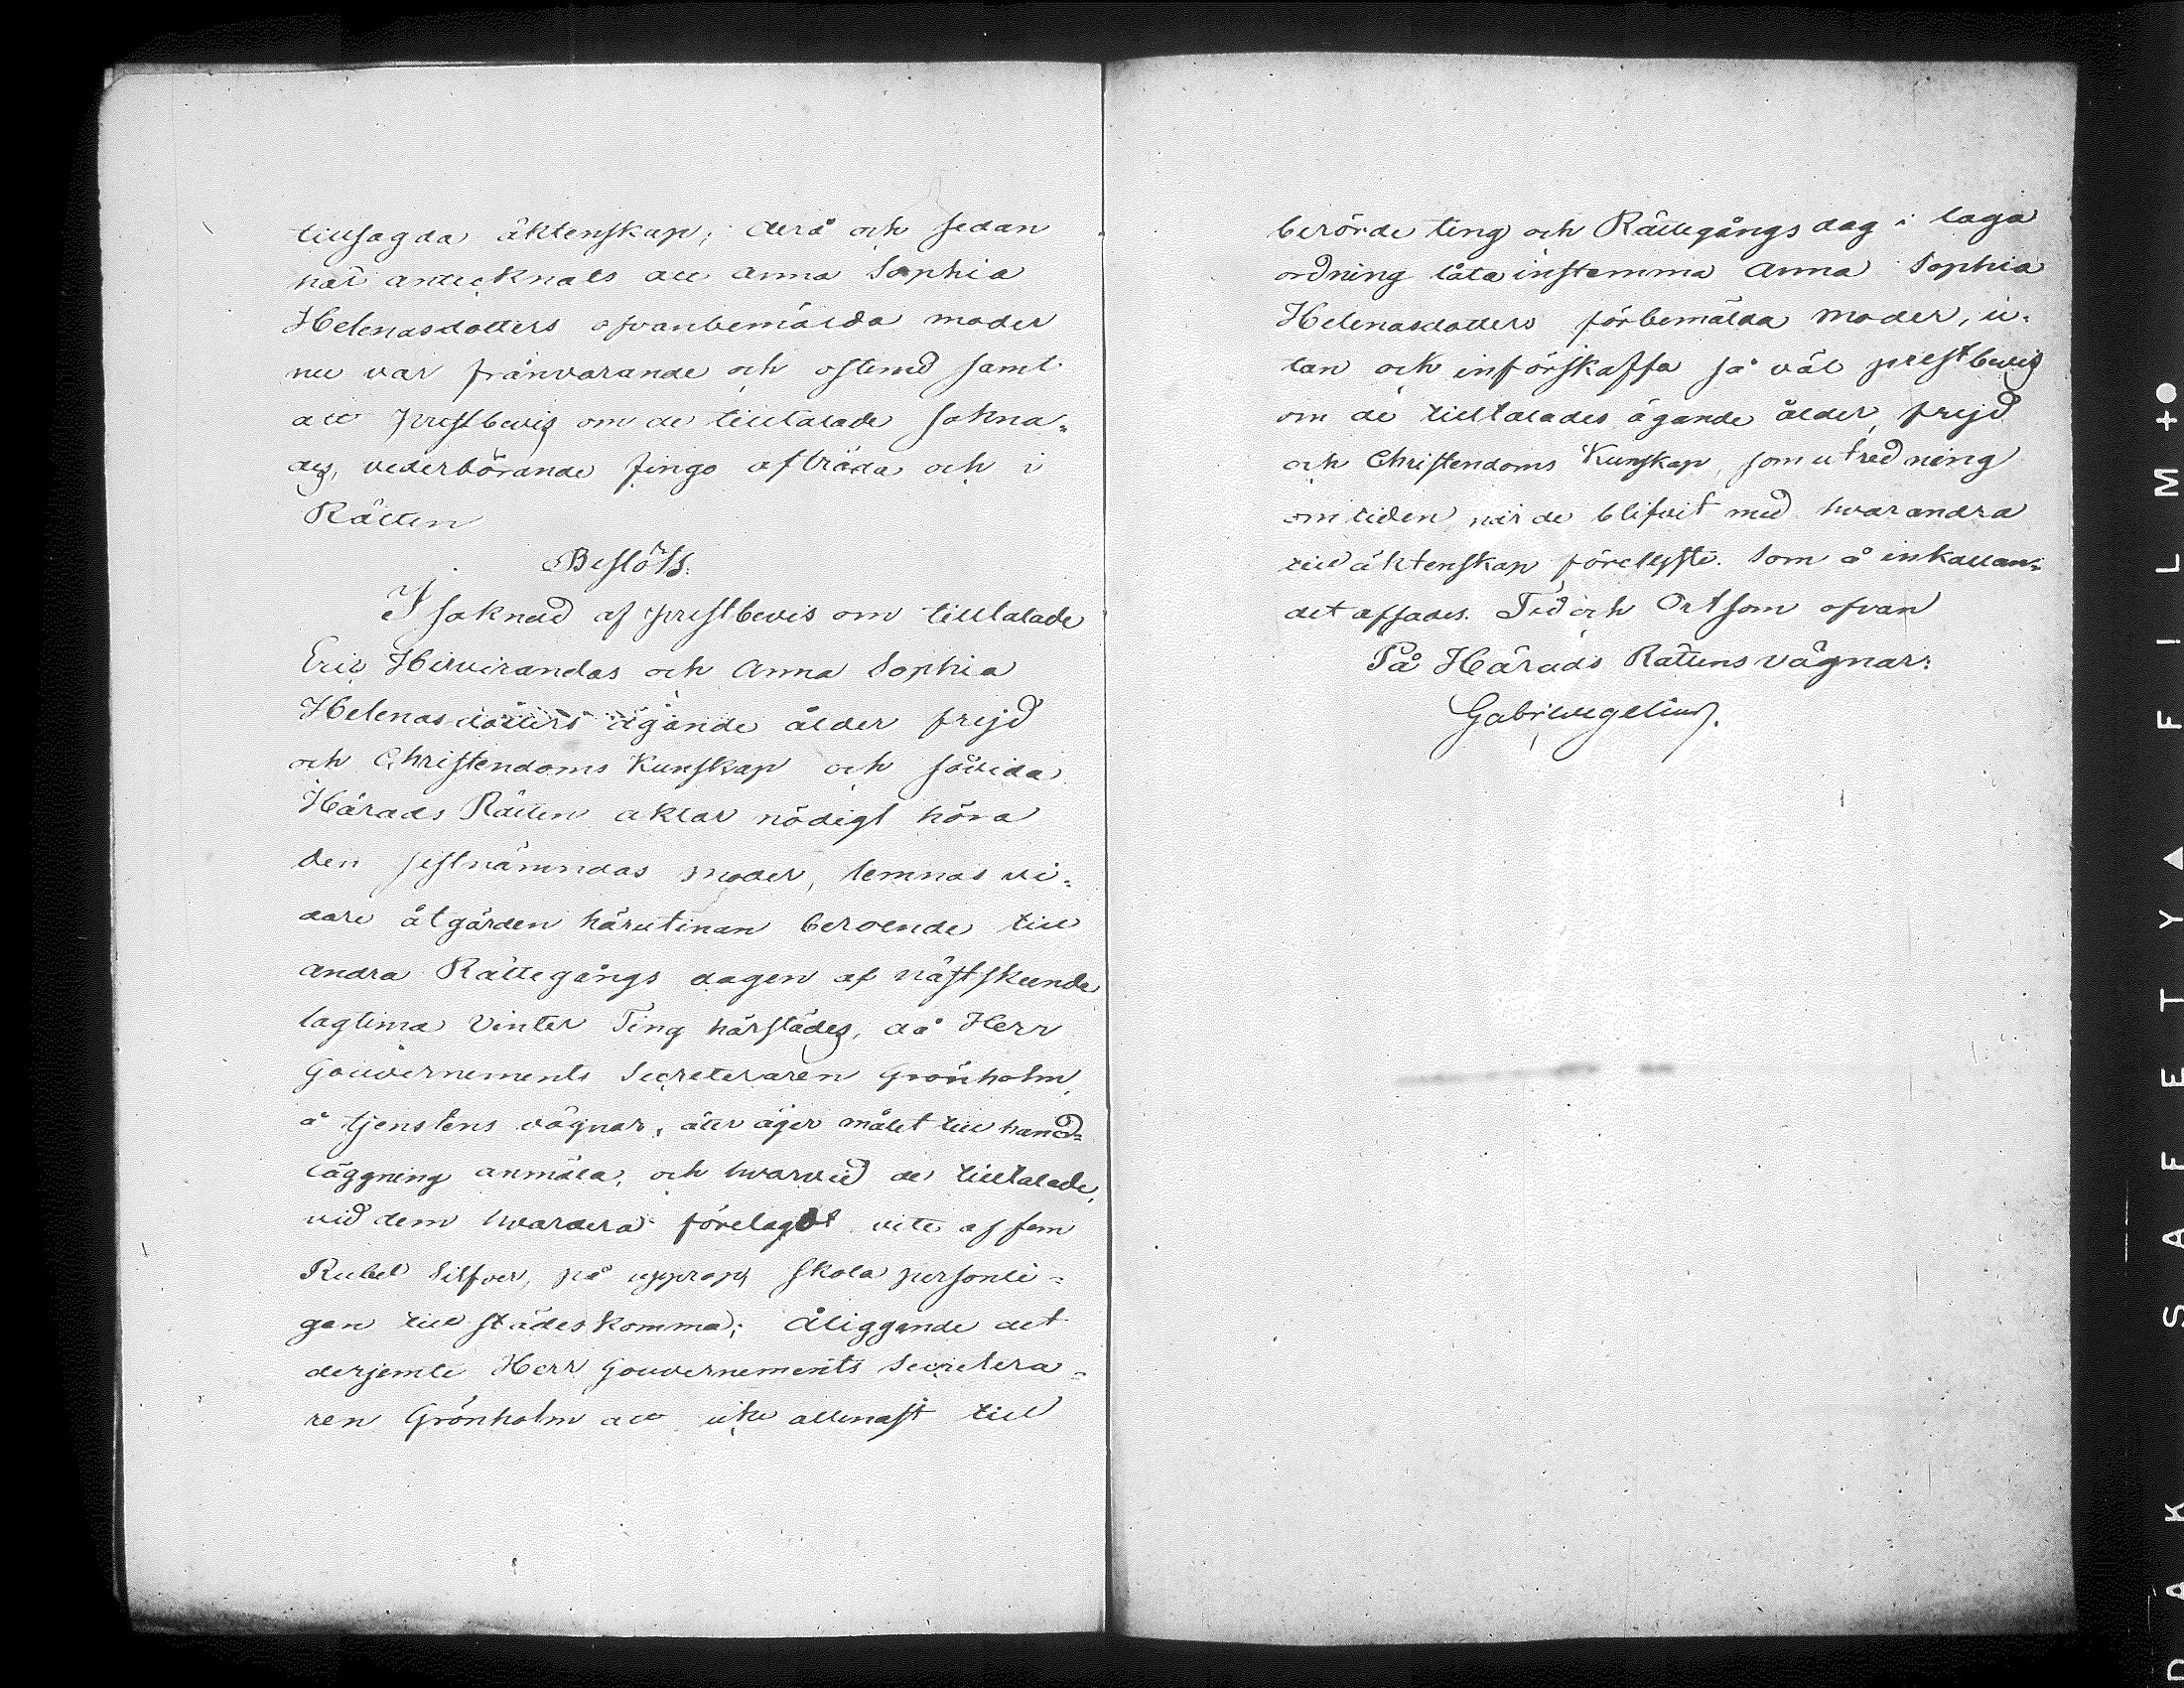 tillsagda äktenskap; derå och sedan
här antecknats att Anna Sophia
Helenasdotters ofvanbemälda moder
nu var frånvarande och ostemd samt
att prestbevis om de tilltalade sakna=
des, vederbörande fingo afträda och i
Rätten
Beslöts.
I saknad af prestbevis om tilltalade
Eric Hirvirandas och Anna Sophia
Helenasdotters ägande ålder frejd
och Christendoms Kunskap och såvida
Härads Rätten aktar nödigt höra
den sistnämndas moder, lemnas vi=
dare åtgärden härutinan beroende till
andra Rättegångs dagen af nästskeende
lagtima Vinter Ting härstädes, då Herr
Gouvernements Secreteraren Grönholm,
å tjenstens vägnar, åter äger målet till hand=
läggning anmäla, och hvarvid de tilltalade,
vid dem hvardera förelagdt vite af fem
Rubel Silfver, på upprop, skola personli=
gen till städes komma; Åliggande det
derjemte Herr Gouvernements Secretera=
ren Grönholm att icke allenast till
berörde ting och Rättegångs dag i laga
ordning låta instemma Anna Sophia
Helenasdotters förbemälda moder, u=
tan och införskaffa så väl prestbevis
om de tilltalades ägande ålder, frejd
och Christendoms Kunskap, som utredning
om tiden när de blifvit med hvarandra
till äktenskap förelyste. Som å inkallan=
det afsades. Tid och Ort som ofvan
På Härads Rättens vägnar:
Gabr: Wegelius.
SAFETY ▲ FILM +●